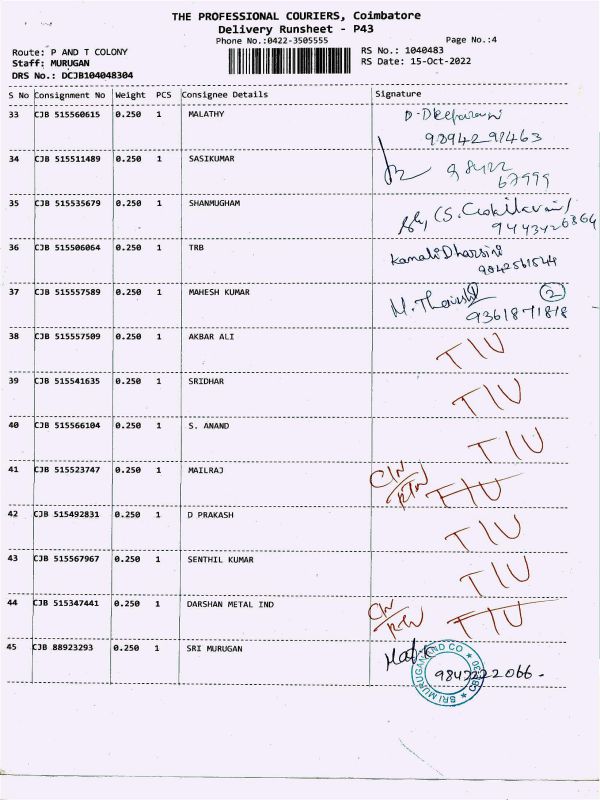 THE PROFESSIONAL COURIERS, Coimbatore
Delivery Runsheet - P43
Phone No.:0422-3505555
Page No.:4
Route: P AND T COLONY
RS No.: 1040483
Staff: MURUGAN
RS Date: 15-Oct-2022
DRS No.: DCJB104048304
S No Consignment No Weight PCS Consignee Details Signature
33 CJB 515560615 0.250 1 MALATHY
34 CJB 515511489 0.250 1 SASIKUMAR
98422
67999
35 CJB 515535679 0.250 1 SHANMUGHAM
36 CJB 515506064 0.250 1 TRB KamaliDharsini
9842561544
37 CJB 515557589 0.250 1 MAHESH KUMAR 2
9361871818
38 CJB 515557509 0.250 1 AKBAR ALI TIU
39 CJB 515541635 0.250 1 SRIDHAR TIU
40 CJB 515566104 0.250 1 S. ANAND TIU
41 CJB 515523747 0.250 1 MAILRAJ TIU
42 CJB 515492831 0.250 1 D PRAKASH TIU
43 CJB 515567967 0.250 1 SENTHIL KUMAR TIU
44 CJB 515347441 0.250 1 DARSHAN METAL IND TIU
45 CJB 88923293 0.250 1 SRI MURUGAN
9842222066.
SRI MURUGAN AND CO